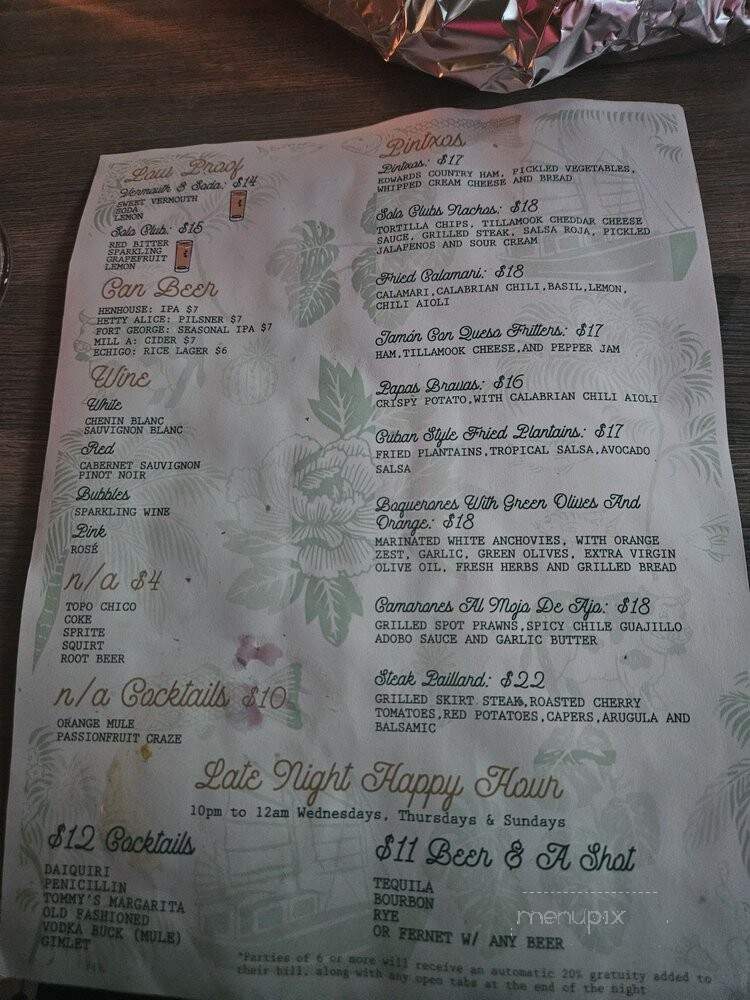 Low Proof
Vermouth & Soda: $14
SWEET VERMOUTH
SODA
LEMON
Solo Club: $15
RED BITTER
SPARKLING
GRAPEFRUIT
LEMON
Can Beer
HENHOUSE: IPA $7
HETTY ALICE: PILSNER $7
FORT GEORGE: SEASONAL IPA $7
MILL A: CIDER $7
ECHIGO: RICE LAGER $6
Wine
White
CHENIN BLANC
SAUVIGNON BLANC
Red
CABERNET SAUVIGNON
PINOT NOIR
Bubbles
SPARKLING WINE
Pink
ROSÉ
n/a $4
TOPO CHICO
COKE
SPRITE
SQUIRT
ROOT BEER
n/a Cocktails $10
ORANGE MULE
PASSIONFRUIT CRAZE
Pintxos
Pintxos: $17
EDWARDS COUNTRY HAM, PICKLED VEGETABLES,
WHIPPED CREAM CHEESE AND BREAD
Solo Clubs Nachos: $18
TORTILLA CHIPS, TILLAMOOK CHEDDAR CHEESE
SAUCE, GRILLED STEAK, SALSA ROJA, PICKLED
JALAPENOS AND SOUR CREAM
Fried Calamari: $18
CALAMARI,CALABRIAN CHILI,BASIL,LEMON,
CHILI AIOLI
Jamón Con Queso Fritters: $17
HAM,TILLAMOOK CHEESE,AND PEPPER JAM
Papas Bravas: $16
CRISPY POTATO,WITH CALABRIAN CHILI AIOLI
Cuban Style Fried Plantains: $17
FRIED PLANTAINS,TROPICAL SALSA,AVOCADO
SALSA
Boquerones With Green Olives And
Orange: $18
MARINATED WHITE ANCHOVIES, WITH ORANGE
ZEST, GARLIC, GREEN OLIVES, EXTRA VIRGIN
OLIVE OIL, FRESH HERBS AND GRILLED BREAD
Camarones Al Mojo De Ajo: $18
GRILLED SPOT PRAWNS,SPICY CHILE GUAJILLO
ADOBO SAUCE AND GARLIC BUTTER
Steak Paillard: $22
GRILLED SKIRT STEAK,ROASTED CHERRY
TOMATOES,RED POTATOES,CAPERS,ARUGULA AND
BALSAMIC
Late Night Happy Hour
10pm to 12am Wednesdays, Thursdays & Sundays
$12 Cocktails
DAIQUIRI
PENICILLIN
TOMMY'S MARGARITA
OLD FASHIONED
VODKA BUCK (MULE)
GIMLET
$11 Beer & A Shot
TEQUILA
BOURBON
RYE
OR FERNET W/ ANY BEER
menupix
*Parties of 6 or more will receive an automatic 20% gratuity added to
their bill, along with any open tabs at the end of the night